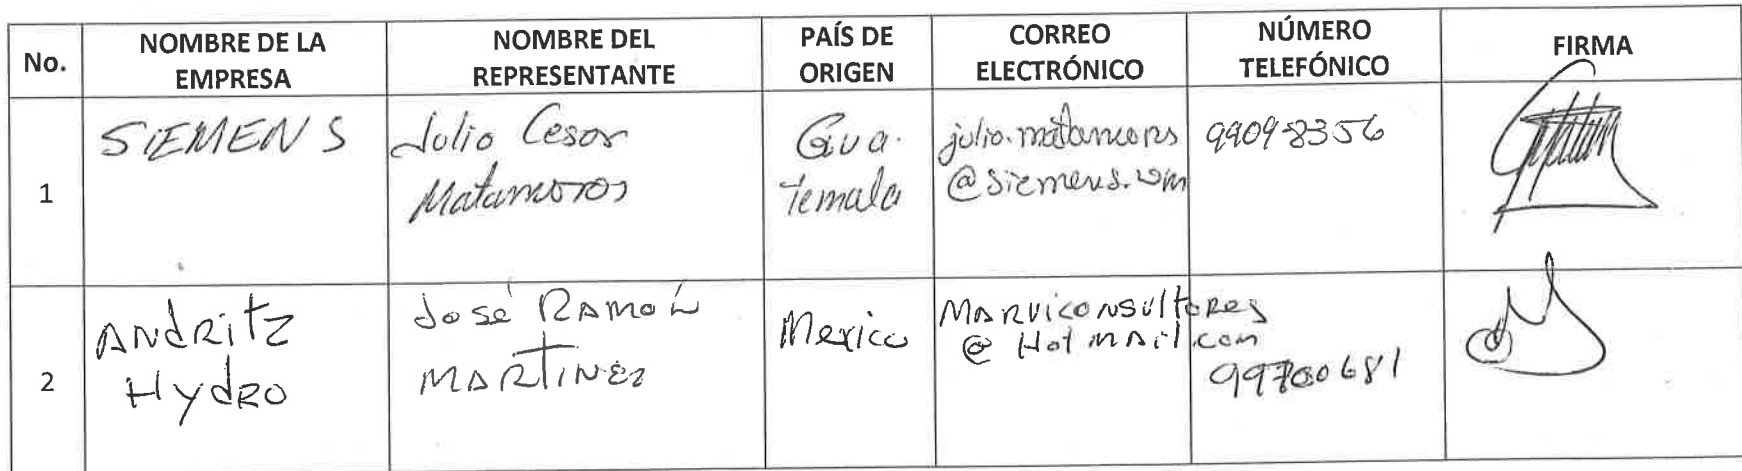 No.
NOMBRE DE LA
EMPRESA
NOMBRE DEL
REPRESENTANTE
PAÍS DE
ORIGEN
CORREO
ELECTRÓNICO
NÚMERO
TELEFÓNICO
FIRMA
1
SIEMENS
Julio Cesar
Matamoros
Gua.
temala
julio.matamoros
@siemens.com
9909-8356
2
ANdRitz
HydRO
José RAmoń
MARTINEz
Mexico
MARVICONSULtoRes
@ HotmAil.com
99700681